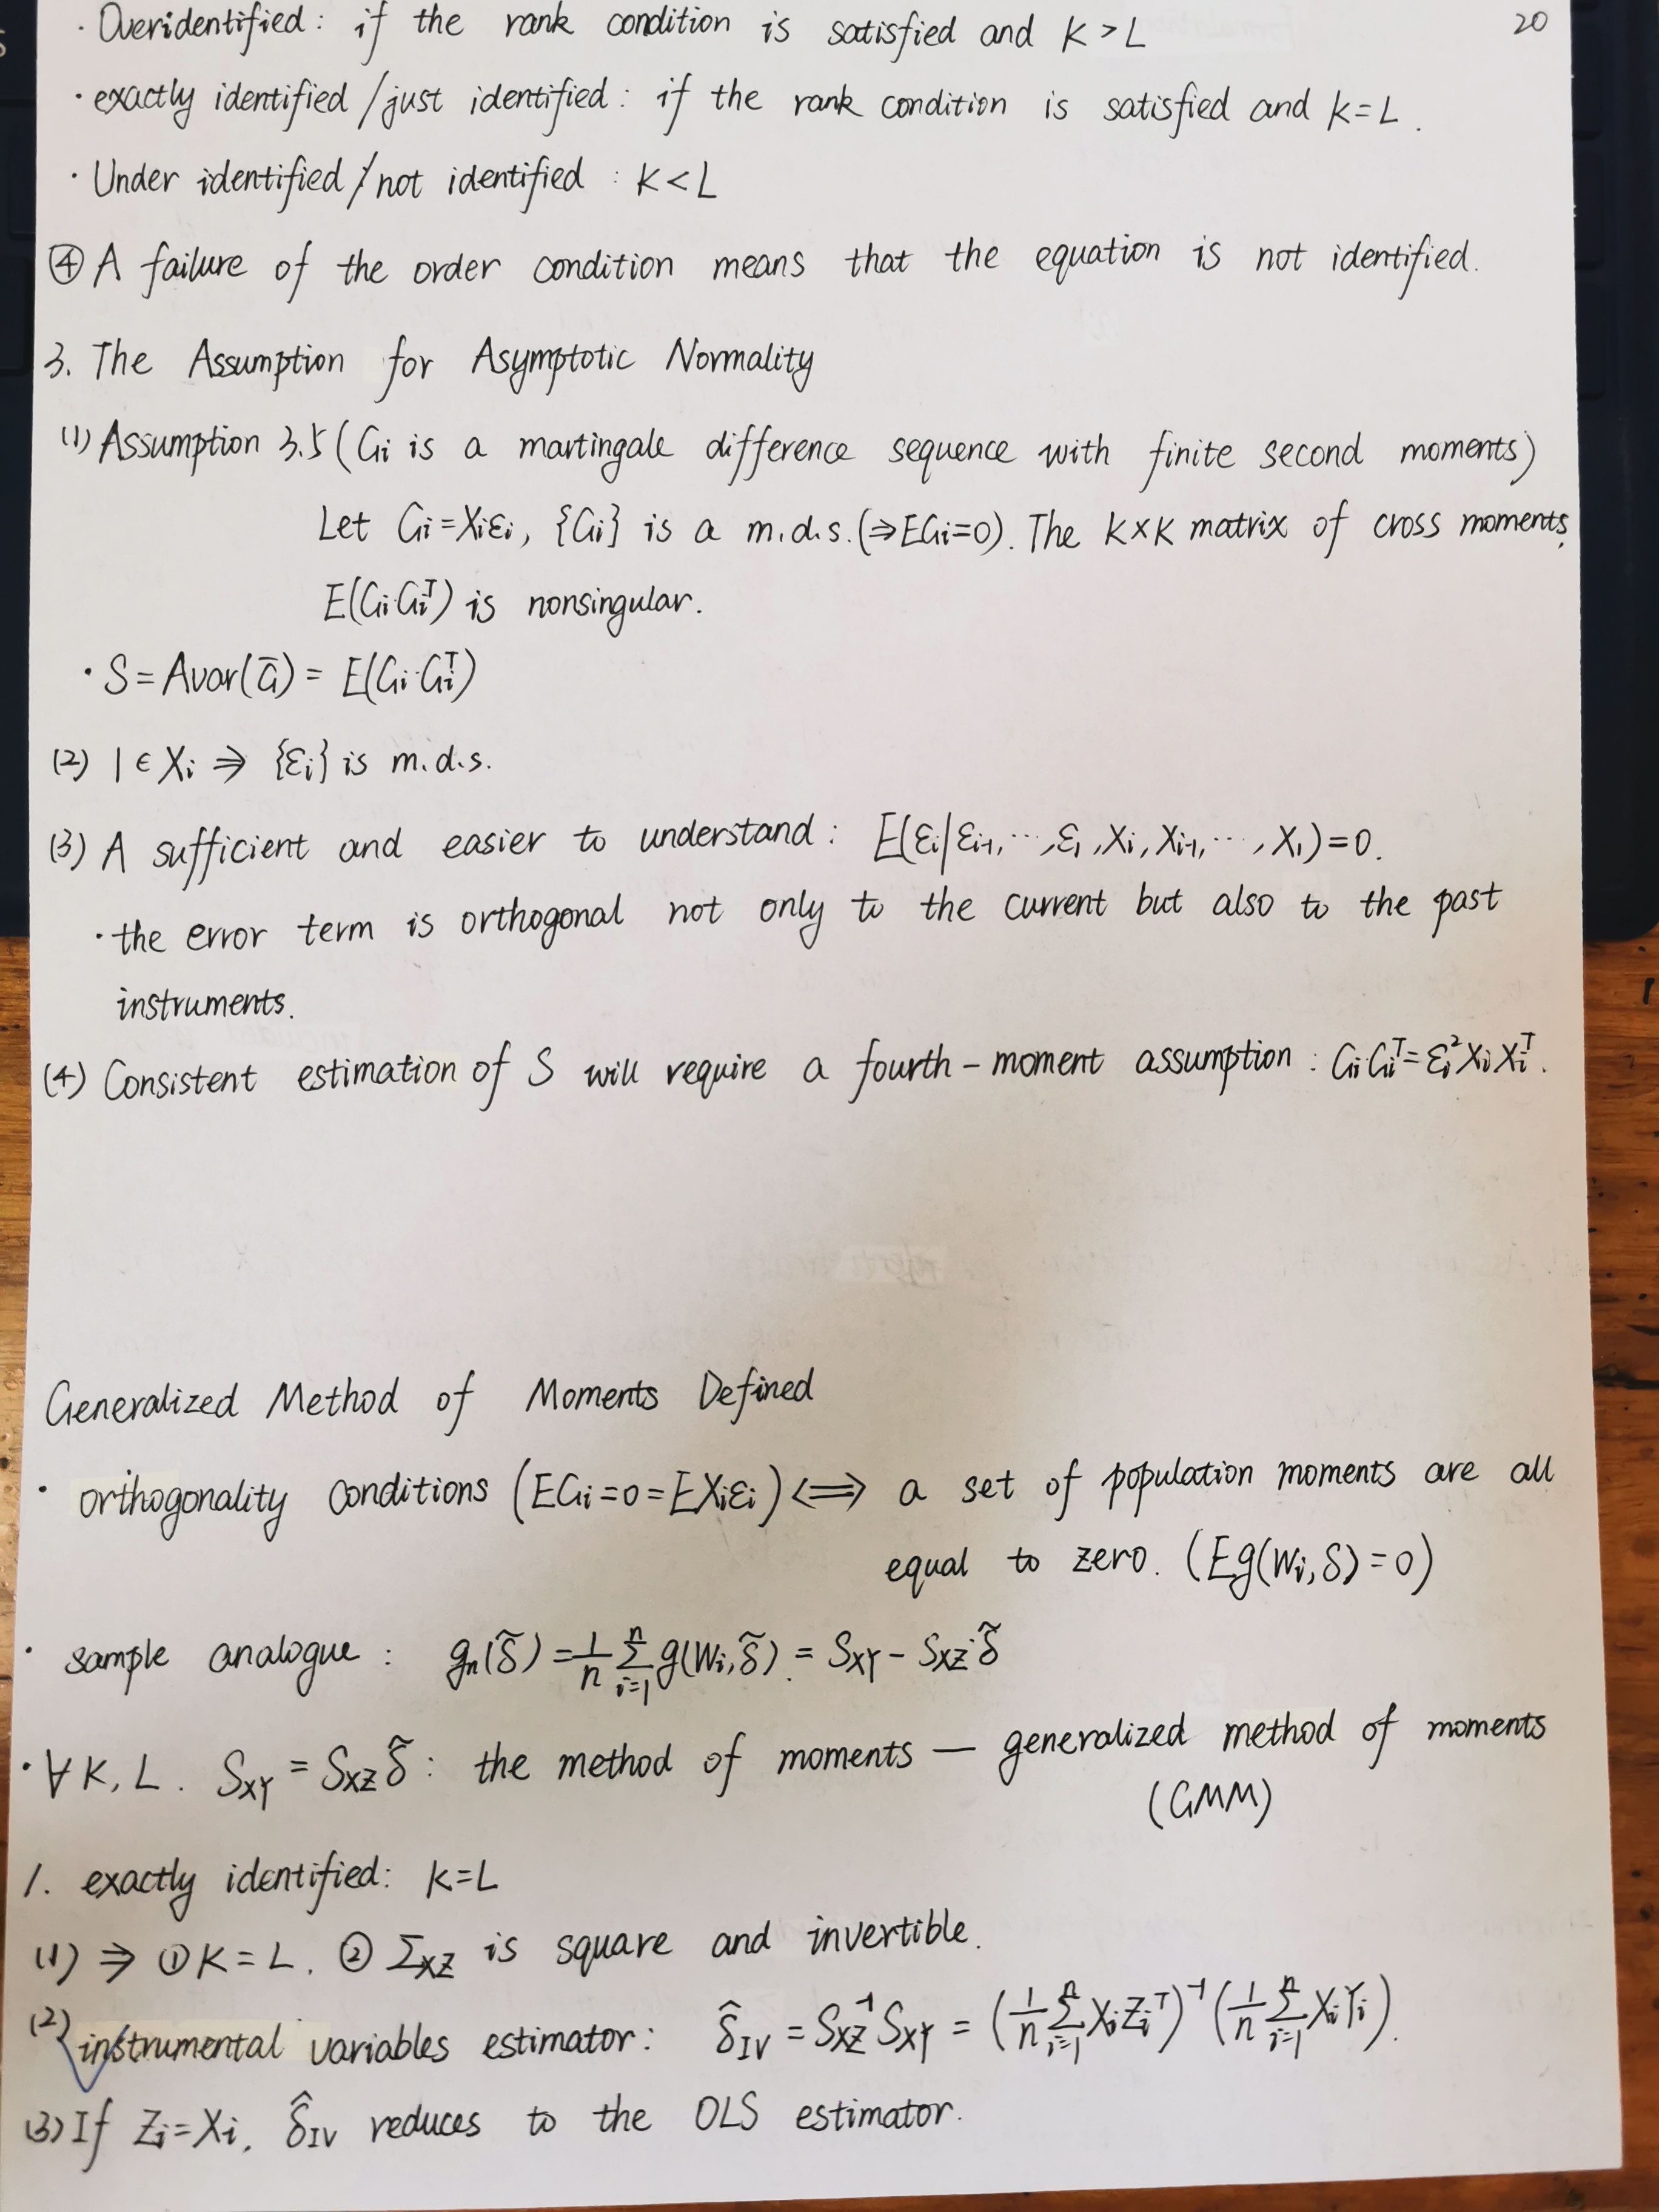 20
· Overidentified: if the rank condition is satisfied and K > L
· exactly identified /just identified: if the rank condition is satisfied and K=L.
· Under identified / not identified : K < L
④ A failure of the order condition means that the equation is not identified.
3. The Assumption for Asymptotic Normality
(1) Assumption 3.5 (Gi is a martingale difference sequence with finite second moments)
Let Gi=Xiεi, {Gi} is a m.d.s.(⇒EGi=0). The K×K matrix of cross moments,
E(Gi·Giᵀ) is nonsingular.
· S = Avar(G̅) = E(Gi·Giᵀ)
(2) 1 ∈ Xi ⇒ {εi} is m.d.s.
(3) A sufficient and easier to understand: E(εi|εi-1, ···, ε1, Xi, Xi-1, ···, X1)=0.
· the error term is orthogonal not only to the current but also to the past
instruments.
(4) Consistent estimation of S will require a fourth-moment assumption: GiGiᵀ=εi²XiXiᵀ.
Generalized Method of Moments Defined
· orthogonality conditions (EGi=0=EXiεi) ⟺ a set of population moments are all
equal to zero. (Eg(Wi,δ)=0)
· sample analogue: gn(δ̃) = 1/n Σ_{i=1}^n g(Wi,δ̃). = SXY - SXZ·δ̃
· ∀ K, L. SXY = SXZ δ̃ : the method of moments — generalized method of moments
(GMM)
1. exactly identified: K=L
(1) ⇒ ① K = L. ② ΣXZ is square and invertible.
(2) instrumental variables estimator: δ̂IV = SXZ⁻¹SXY = (1/n Σ_{i=1}^n XiZiᵀ)⁻¹ (1/n Σ_{i=1}^n XiYi).
(3) If Zi=Xi, δ̂IV reduces to the OLS estimator.